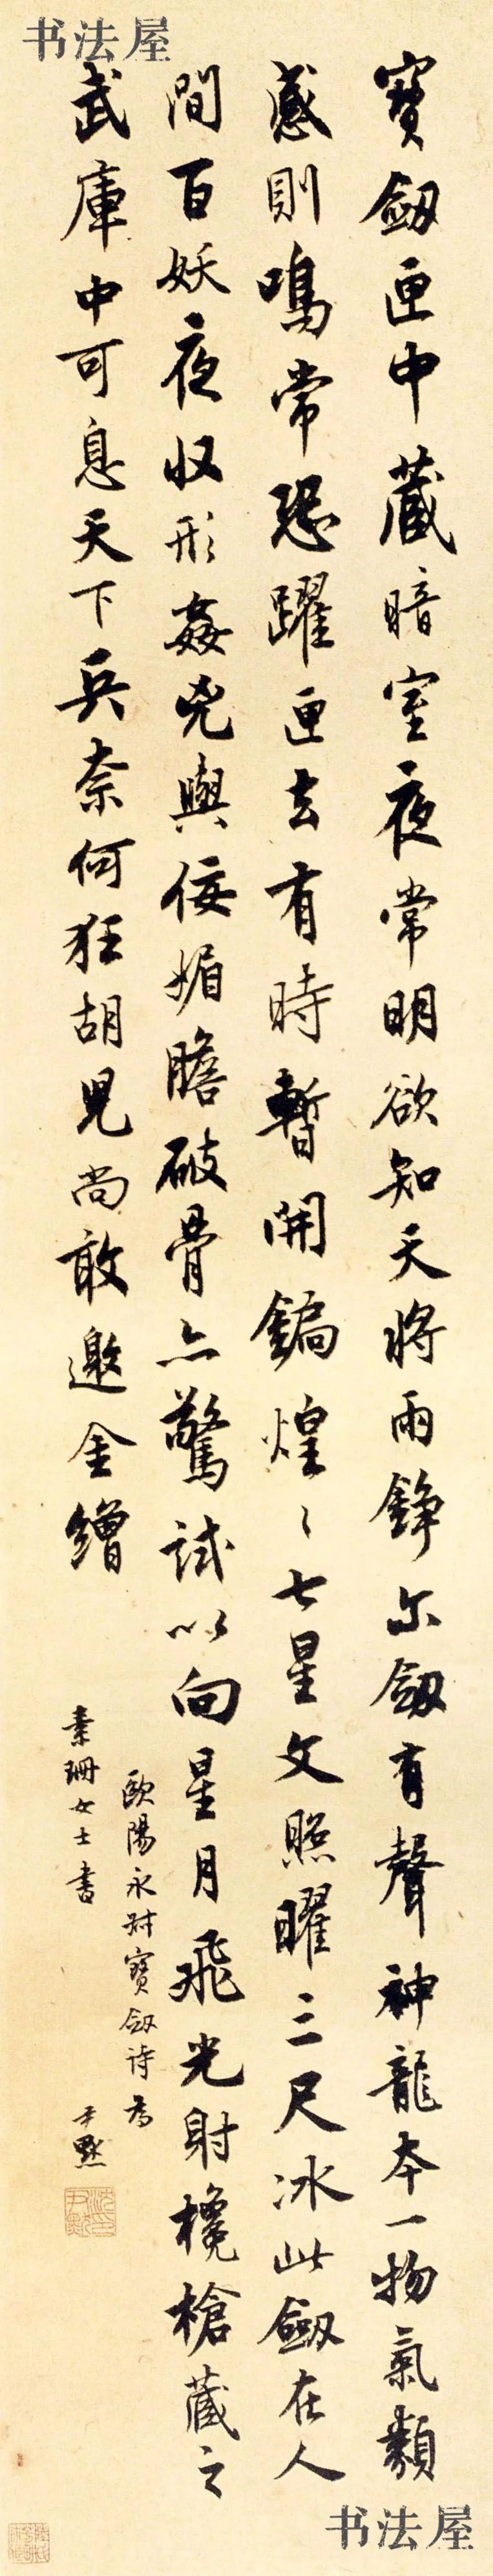 书法屋
寶劔匣中藏暗室夜常明欲知天將雨錚尓劔有聲神龍本一物氣類
感則鳴常恐躍匣去有時暫開鐍煌〻七星文照曜三尺冰此劔在人
間百妖夜収形姦兇與佞媚膽破骨亦驚試以向星月飛光射欃槍藏之
武庫中可息天下兵奈何狂胡児尚敢邀金繒
歐陽永叔寶劔诗为
素珊女士書
尹默
沈尹默印
书法屋